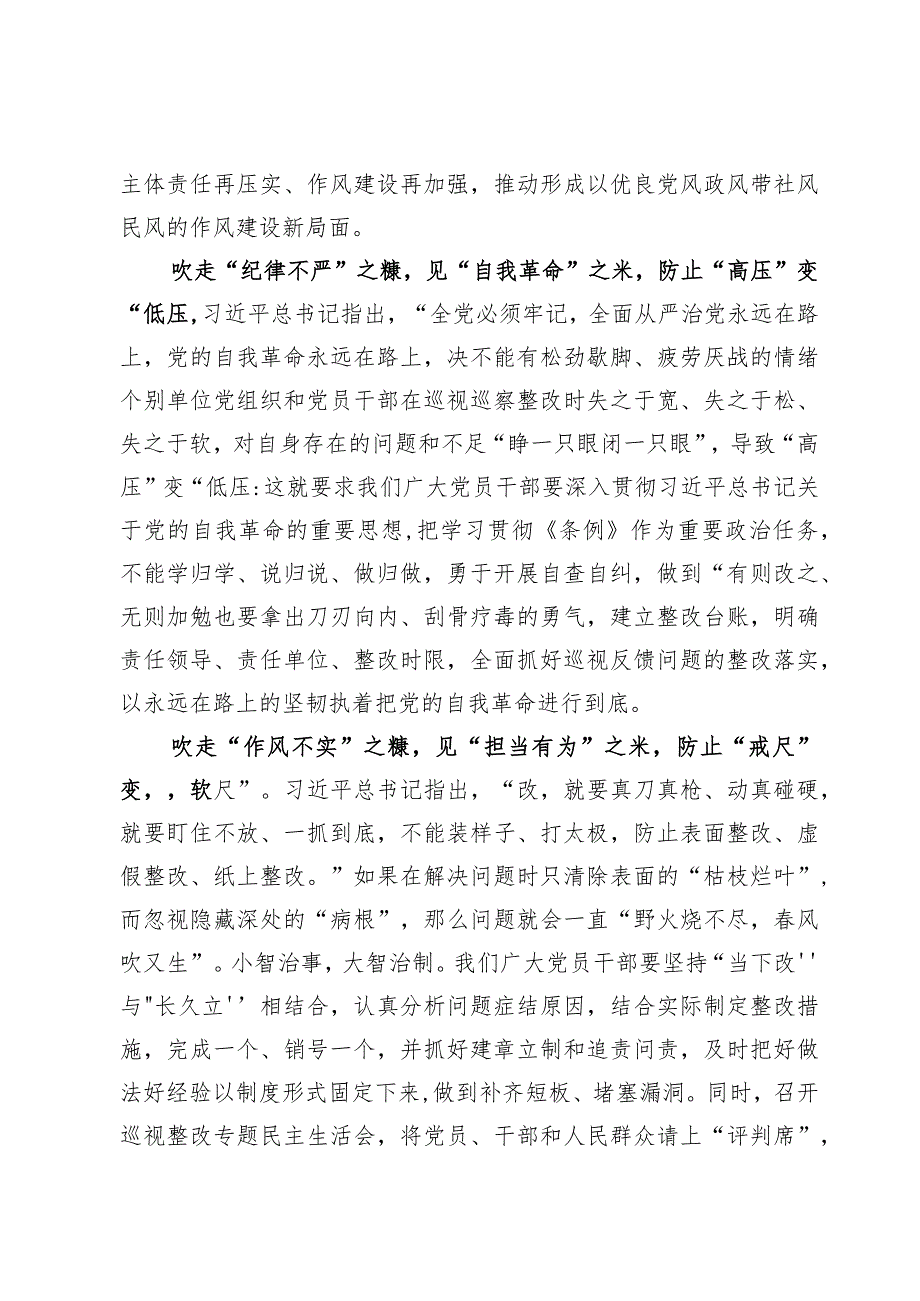 主体责任再压实、作风建设再加强，推动形成以优良党风政风带社风
民风的作风建设新局面。
吹走“纪律不严”之糠，见“自我革命”之米，防止“高压”变
“低压,习近平总书记指出，“全党必须牢记，全面从严治党永远在路
上，党的自我革命永远在路上，决不能有松劲歇脚、疲劳厌战的情绪
个别单位党组织和党员干部在巡视巡察整改时失之于宽、失之于松、
失之于软，对自身存在的问题和不足“睁一只眼闭一只眼”，导致“高
压”变“低压:这就要求我们广大党员干部要深入贯彻习近平总书记关
于党的自我革命的重要思想,把学习贯彻《条例》作为重要政治任务，
不能学归学、说归说、做归做，勇于开展自查自纠，做到“有则改之、
无则加勉也要拿出刀刃向内、刮骨疗毒的勇气，建立整改台账，明确
责任领导、责任单位、整改时限，全面抓好巡视反馈问题的整改落实，
以永远在路上的坚韧执着把党的自我革命进行到底。
吹走“作风不实”之糠，见“担当有为”之米，防止“戒尺”
变，，软尺”。习近平总书记指出，“改，就要真刀真枪、动真碰硬，
就要盯住不放、一抓到底，不能装样子、打太极，防止表面整改、虚
假整改、纸上整改。”如果在解决问题时只清除表面的“枯枝烂叶”，
而忽视隐藏深处的“病根”，那么问题就会一直“野火烧不尽，春风
吹又生”。小智治事，大智治制。我们广大党员干部要坚持“当下改''
与"长久立'’相结合，认真分析问题症结原因，结合实际制定整改措
施，完成一个、销号一个，并抓好建章立制和追责问责，及时把好做
法好经验以制度形式固定下来,做到补齐短板、堵塞漏洞。同时，召开
巡视整改专题民主生活会，将党员、干部和人民群众请上“评判席”，